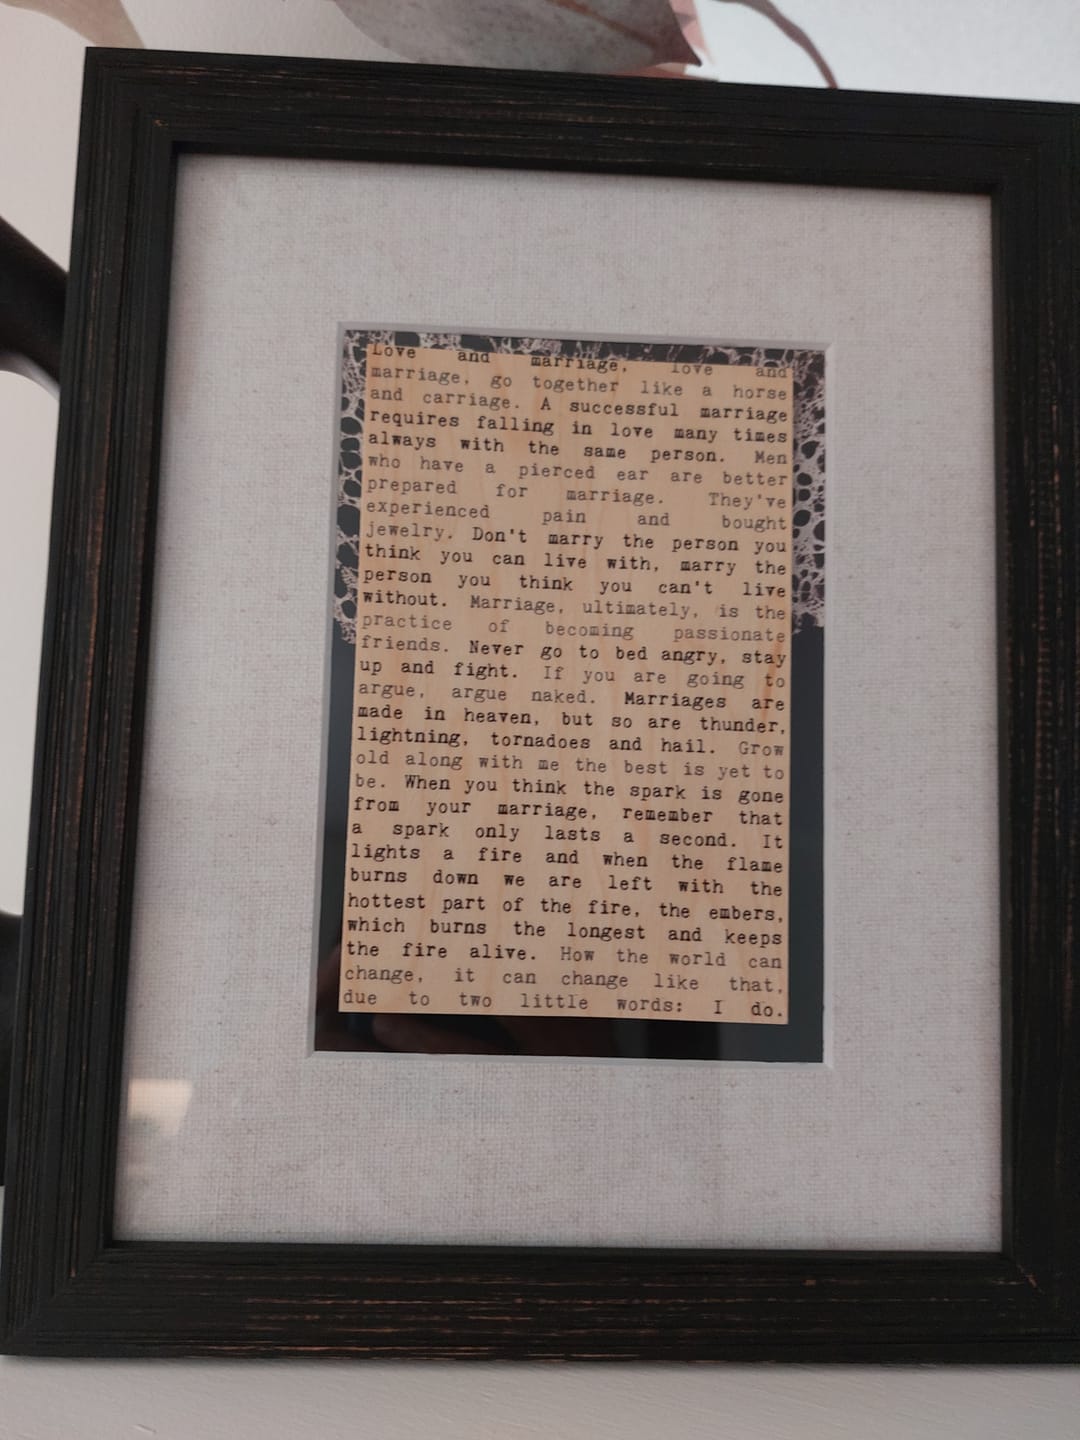 Love and marriage, love and
marriage, go together like a horse
and carriage. A successful marriage
requires falling in love many times
always with the same person. Men
who have a pierced ear are better
prepared for marriage. They've
experienced pain and bought
jewelry. Don't marry the person you
think you can live with, marry the
person you think you can't live
without. Marriage, ultimately, is the
practice of becoming passionate
friends. Never go to bed angry, stay
up and fight. If you are going to
argue, argue naked. Marriages are
made in heaven, but so are thunder,
lightning, tornadoes and hail. Grow
old along with me the best is yet to
be. When you think the spark is gone
from your marriage, remember that
a spark only lasts a second. It
lights a fire and when the flame
burns down we are left with the
hottest part of the fire, the embers,
which burns the longest and keeps
the fire alive. How the world can
change, it can change like that,
due to two little words: I do.